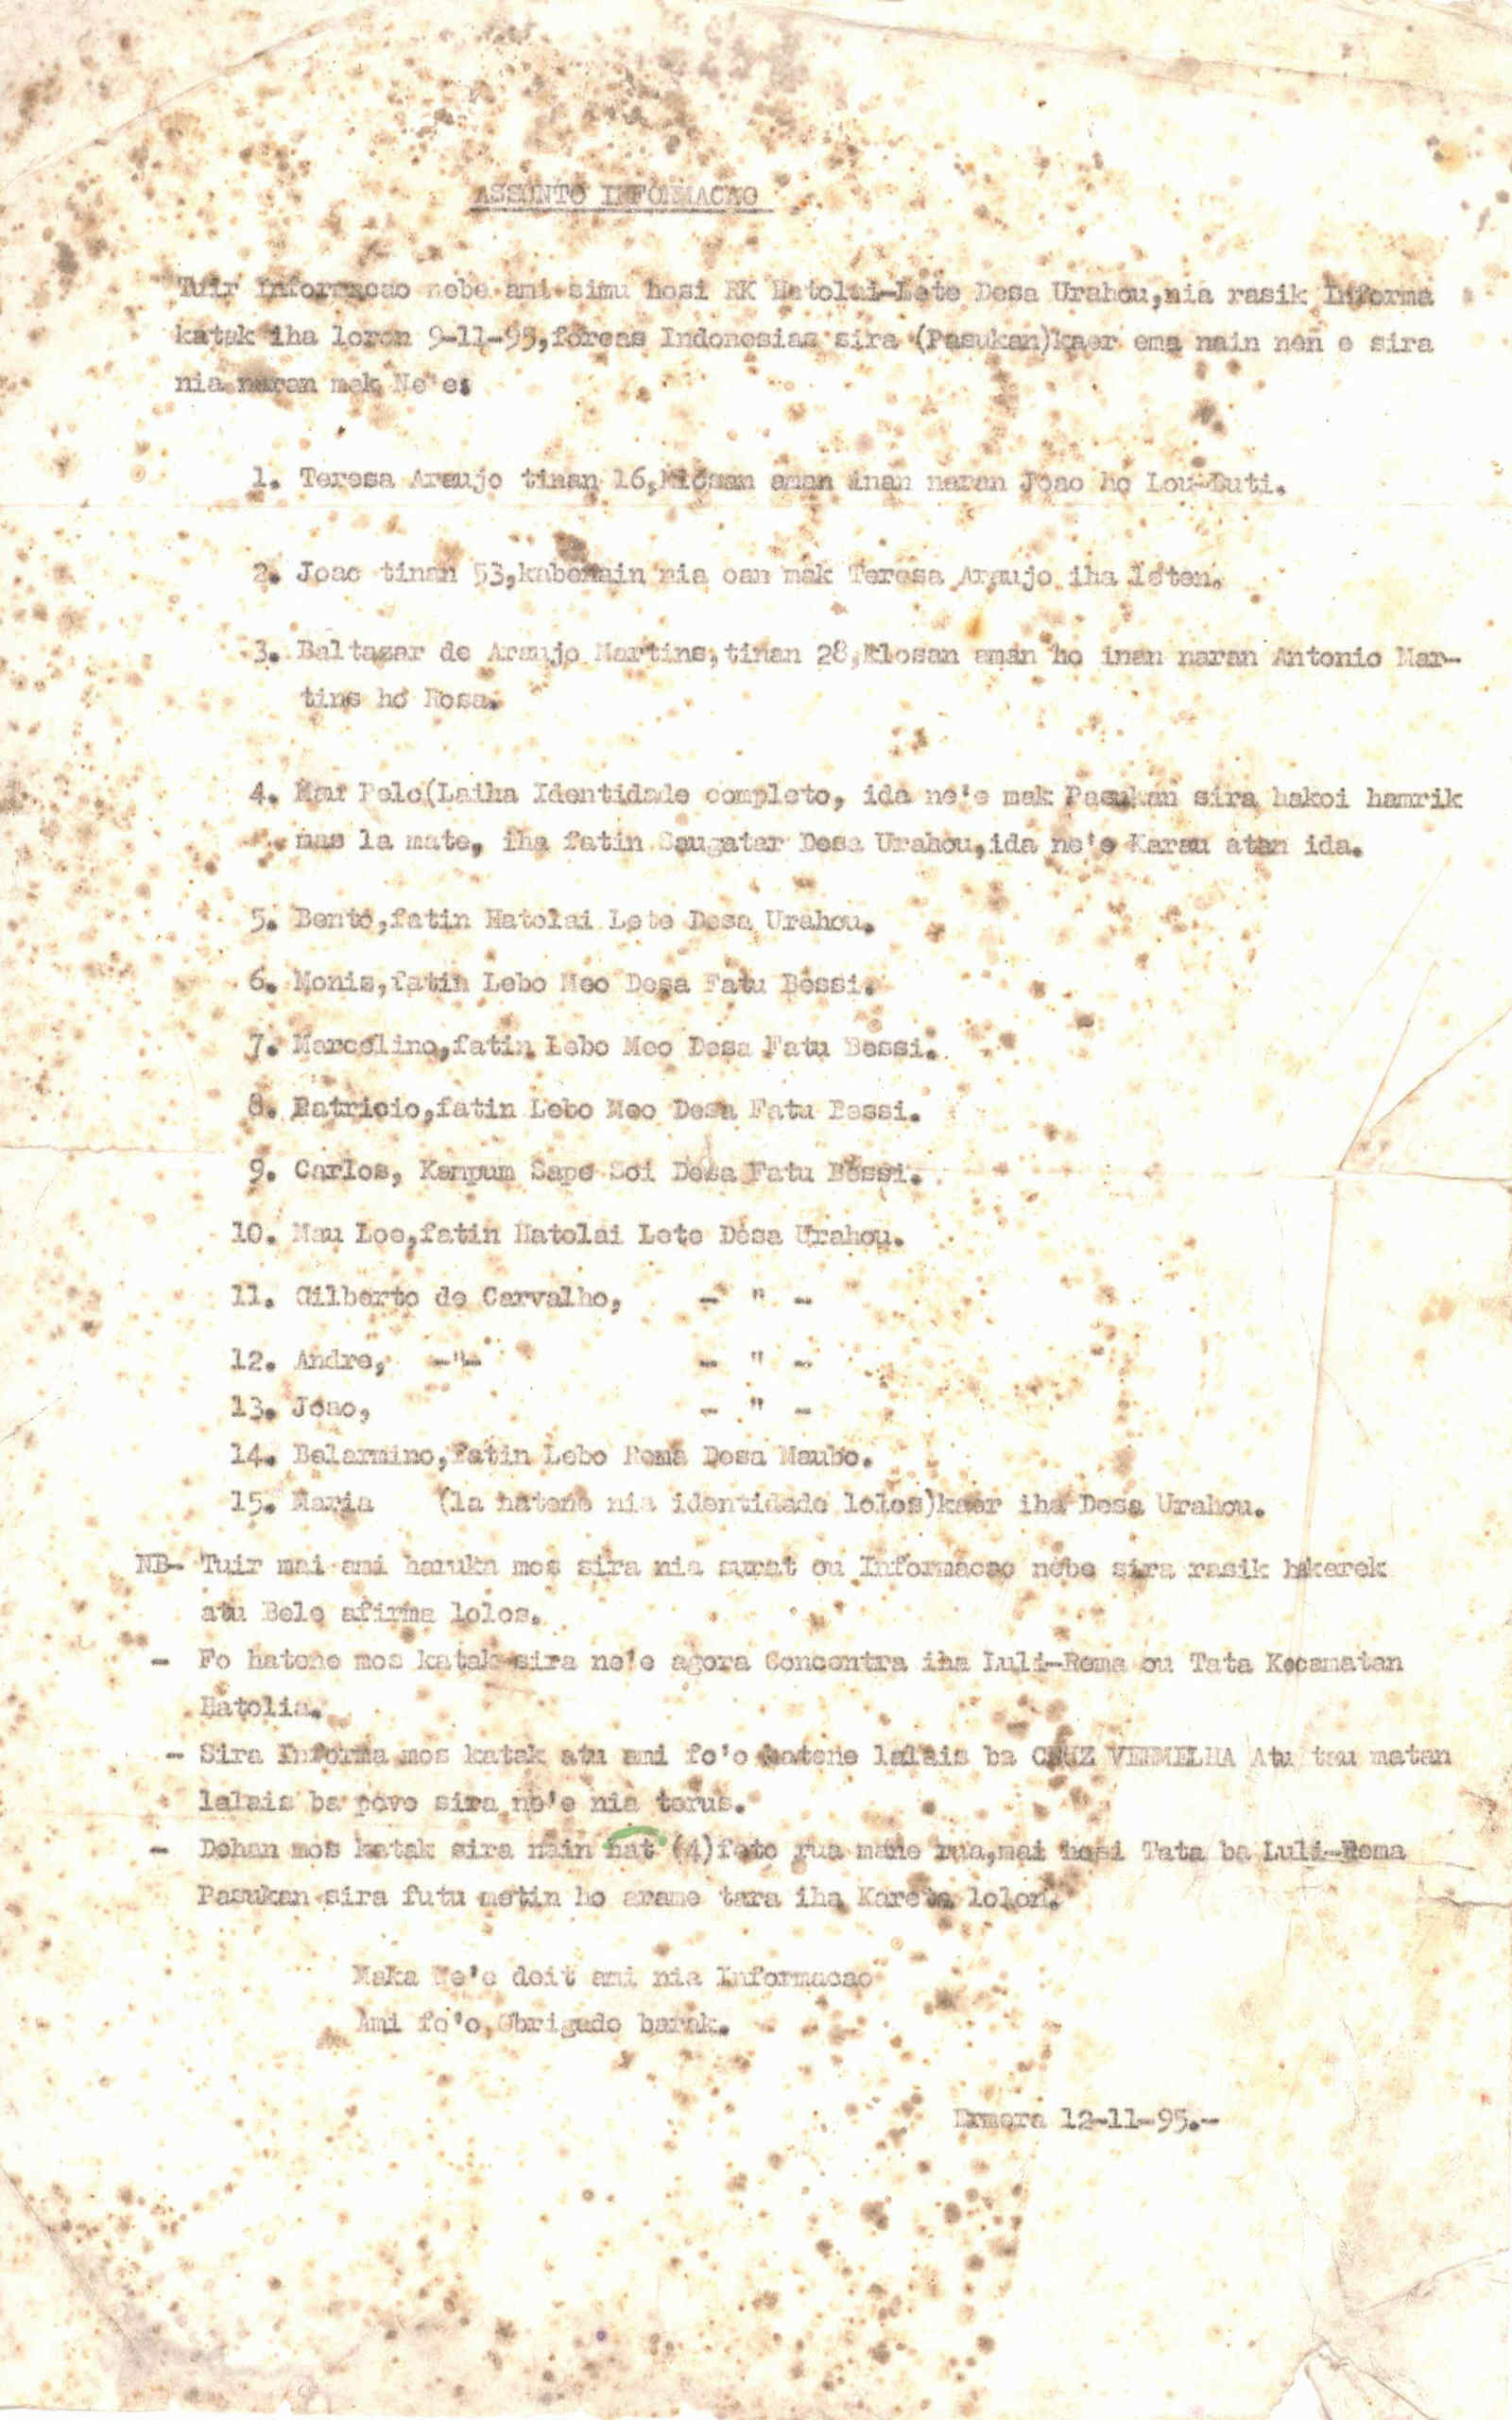 ASSUNTO INFORMACAO
Tuir Informacao nebe ami simu hosi RK Hatolai-Lete Desa Urahou,nia rasik Informa
katak iha loron 9-11-95,forcas Indonesias sira (Pasukan)kaer ema nain nen e sira
nia naran mak Ne'e:
1. Teresa Araujo tinan 16, aman inan naran Joao ho Lou-Buti.
2. Joao tinan 53,kabenain nia oan mak Teresa Araujo iha leten.
3. Baltazar de Araujo Martins,tinan 28,Klosan aman ho inan naran Antonio Mar-
tins ho Rosa.
4. Mau Pelo(Laiha Identidade completo, ida ne'e mak Pasukan sira hakoi hamrik
mas la mate, iha fatin Saugatar Desa Urahou,ida ne'e Karau atan ida.
5. Bento,fatin Hatolai Lete Desa Urahou.
6. Moniz,fatin Lebo Meo Desa Fatu Bessi.
7. Marcelino,fatin Lebo Meo Desa Fatu Bessi.
8. Patricio,fatin Lebo Meo Desa Fatu Bessi.
9. Carlos, Kanpum Sape Soi Desa Fatu Bessi.
10. Mau Loe,fatin Hatolai Lete Desa Urahou.
11. Gilberto de Carvalho, - " -
12. Andre, -"- - " -
13. Joao, - " -
14. Belarmino,Fatin Lebo Rema Desa Maubo.
15. Maria (la hatene nia identidade lolos)kaer iha Desa Urahou.
NB- Tuir mai ami haruka mos sira nia surat ou Informacao nebe sira rasik hakerek
atu Bele afirma lolos.
- Fo hatene mos katak sira ne'e agora Concentra iha Luli-Rema ou Tata Kecamatan
Hatolia.
- Sira Informa mos katak atu ami fo'o hatene lalais ba CRUZ VERMELHA Atu tau matan
lalais ba povo sira ne'e nia terus.
- Dehan mos katak sira nain hat (4)feto rua mane rua,mai hosi Tata ba Luli-Rema
Pasukan sira futu metin ho arame tara iha Kareta lolon.
Maka Ne'e deit ami nia Informacao
Ami fo'o,Obrigado barak.
Ermera 12-11-95.-